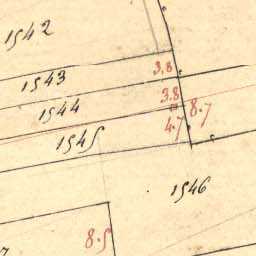 1542
1543
3.8
1544
3.8
8.7
4.7
1545
1546
8.5